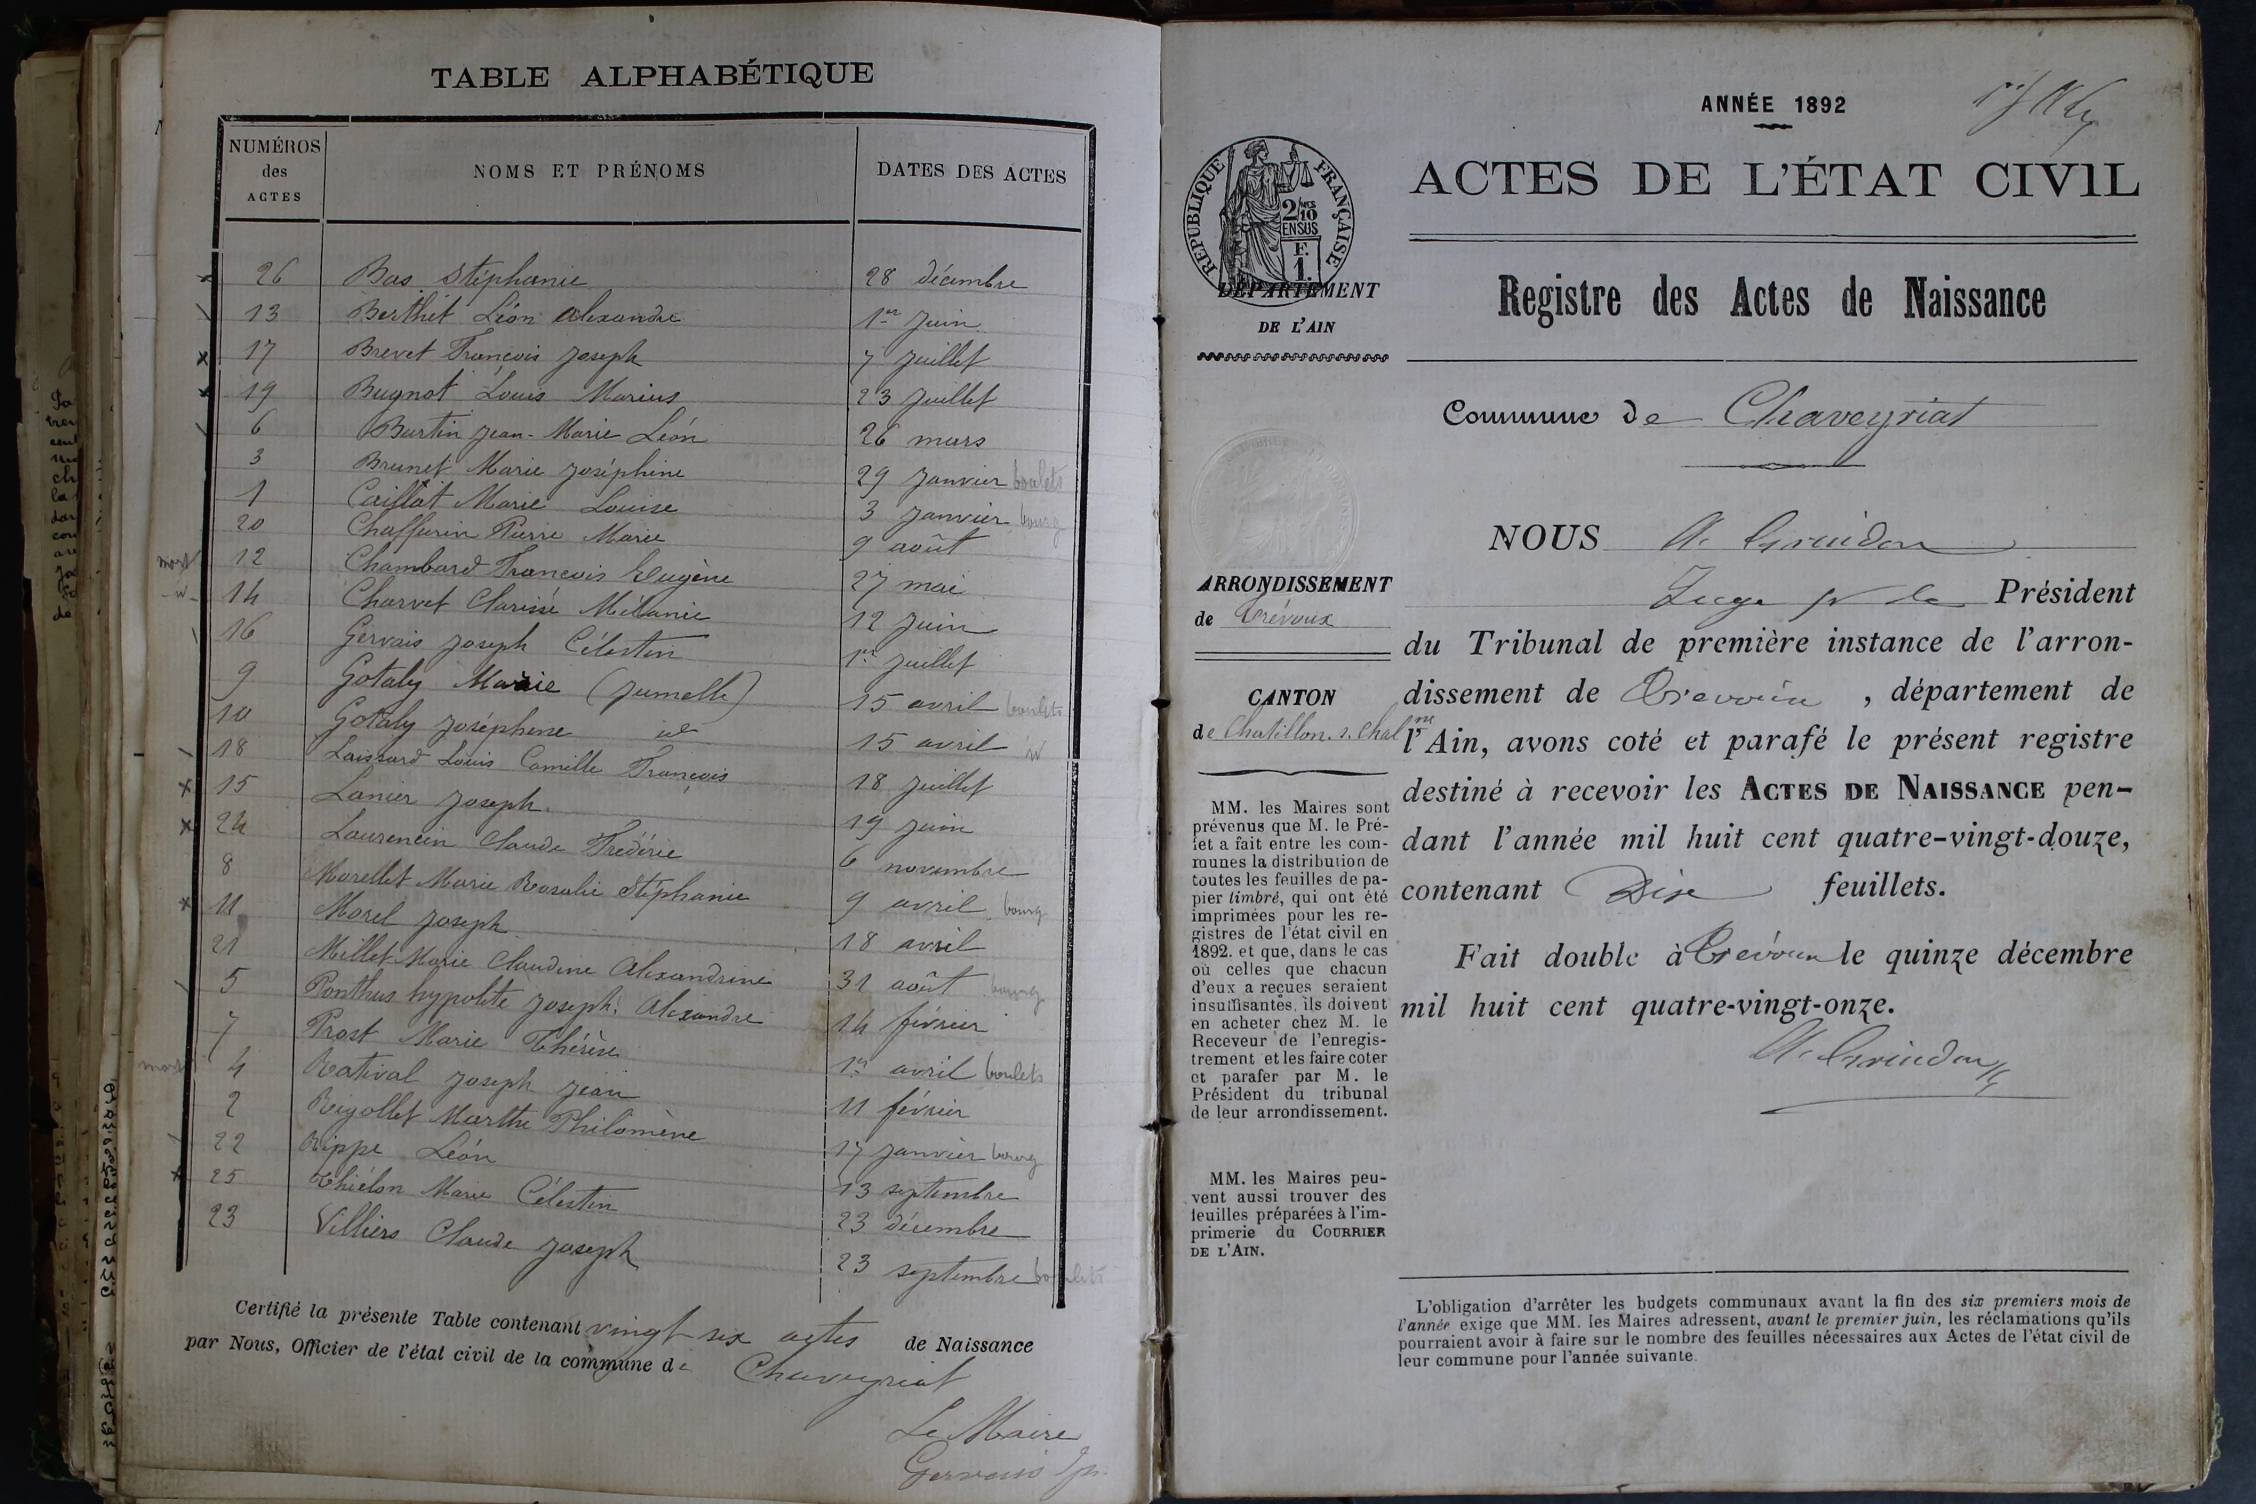 TABLE ALPHABÉTIQUE
NUMÉROS des ACTES NOMS ET PRÉNOMS DATES DES ACTES
26 Bas Stéphanie 28 décembre
13 Berthet Léon Alexandre 1er Juin
17 Brevet François Joseph 7 Juillet
19 Bugnot Louis Marius 23 Juillet
6 Burtin Jean-Marie Léon 26 mars
3 Brunet Marie Joséphine 29 Janvier boulets
1 Caillat Marie Louise 3 Janvier bourg
20 Chaffurin Pierre Marie 9 août
mort 12 Chambard François Eugène 27 mai
14 Charvet Clarisse Mélanie 12 Juin
16 Gervais Joseph Célestin 1er Juillet
9 Gotaly Marie (Jumelle) 15 avril boulets
10 Gotaly Joséphine id 15 avril id
18 Laissard Louis Camille François 18 Juillet
15 Lanier Joseph 19 Juin
24 Laurencin Claude Frédéric 6 novembre
8 Morellet Marie Rosalie Stéphanie 9 avril bourg
11 Morel Joseph 18 avril
21 Millet Marie Claudine Alexandrine 31 août bourg
5 Ponthus hypolite Joseph Alexandre 14 février
7 Prost Marie Thérèse 1er avril boulets
mort 4 Rativat Joseph Jean 11 février
2 Rigollet Marthe Philomène 17 Janvier bourg
22 Rippe Léon 13 septembre
25 Thiélon Marie Célestin 23 décembre
23 Villiers Claude Joseph 23 septembre boulets
Certifié la présente Table contenant vingt six actes de Naissance
par Nous, Officier de l'état civil de la commune de Chaveyriat
Le Maire
Gervais
ANNÉE 1892
ACTES DE L'ÉTAT CIVIL
RÉPUBLIQUE FRANÇAISE
2/10 EN SUS
F. 1.
DÉPARTEMENT
DE L'AIN
Registre des Actes de Naissance
Commune de Chaveyriat
NOUS A. Grindon
Juge pr le Président
ARRONDISSEMENT
de Trévoux
du Tribunal de première instance de l'arron-
dissement de Trévoux, département de
l'Ain, avons coté et parafé le présent registre
destiné à recevoir les ACTES DE NAISSANCE pen-
dant l'année mil huit cent quatre-vingt-douze,
contenant Dix feuillets.
Fait double à Trévoux le quinze décembre
mil huit cent quatre-vingt-onze.
A. Grindon
CANTON
de Chatillon. s. Chalne
MM. les Maires sont
prévenus que M. le Pré-
fet a fait entre les com-
munes la distribution de
toutes les feuilles de pa-
pier timbré, qui ont été
imprimées pour les re-
gistres de l'état civil en
1892. et que, dans le cas
où celles que chacun
d'eux a reçues seraient
insuffisantes, ils doivent
en acheter chez M. le
Receveur de l'enregis-
trement et les faire coter
et parafer par M. le
Président du tribunal
de leur arrondissement.
MM. les Maires peu-
vent aussi trouver des
feuilles préparées à l'im-
primerie du COURRIER
DE L'AIN.
L'obligation d'arrêter les budgets communaux avant la fin des six premiers mois de
l'année exige que MM. les Maires adressent, avant le premier juin, les réclamations qu'ils
pourraient avoir à faire sur le nombre des feuilles nécessaires aux Actes de l'état civil de
leur commune pour l'année suivante.